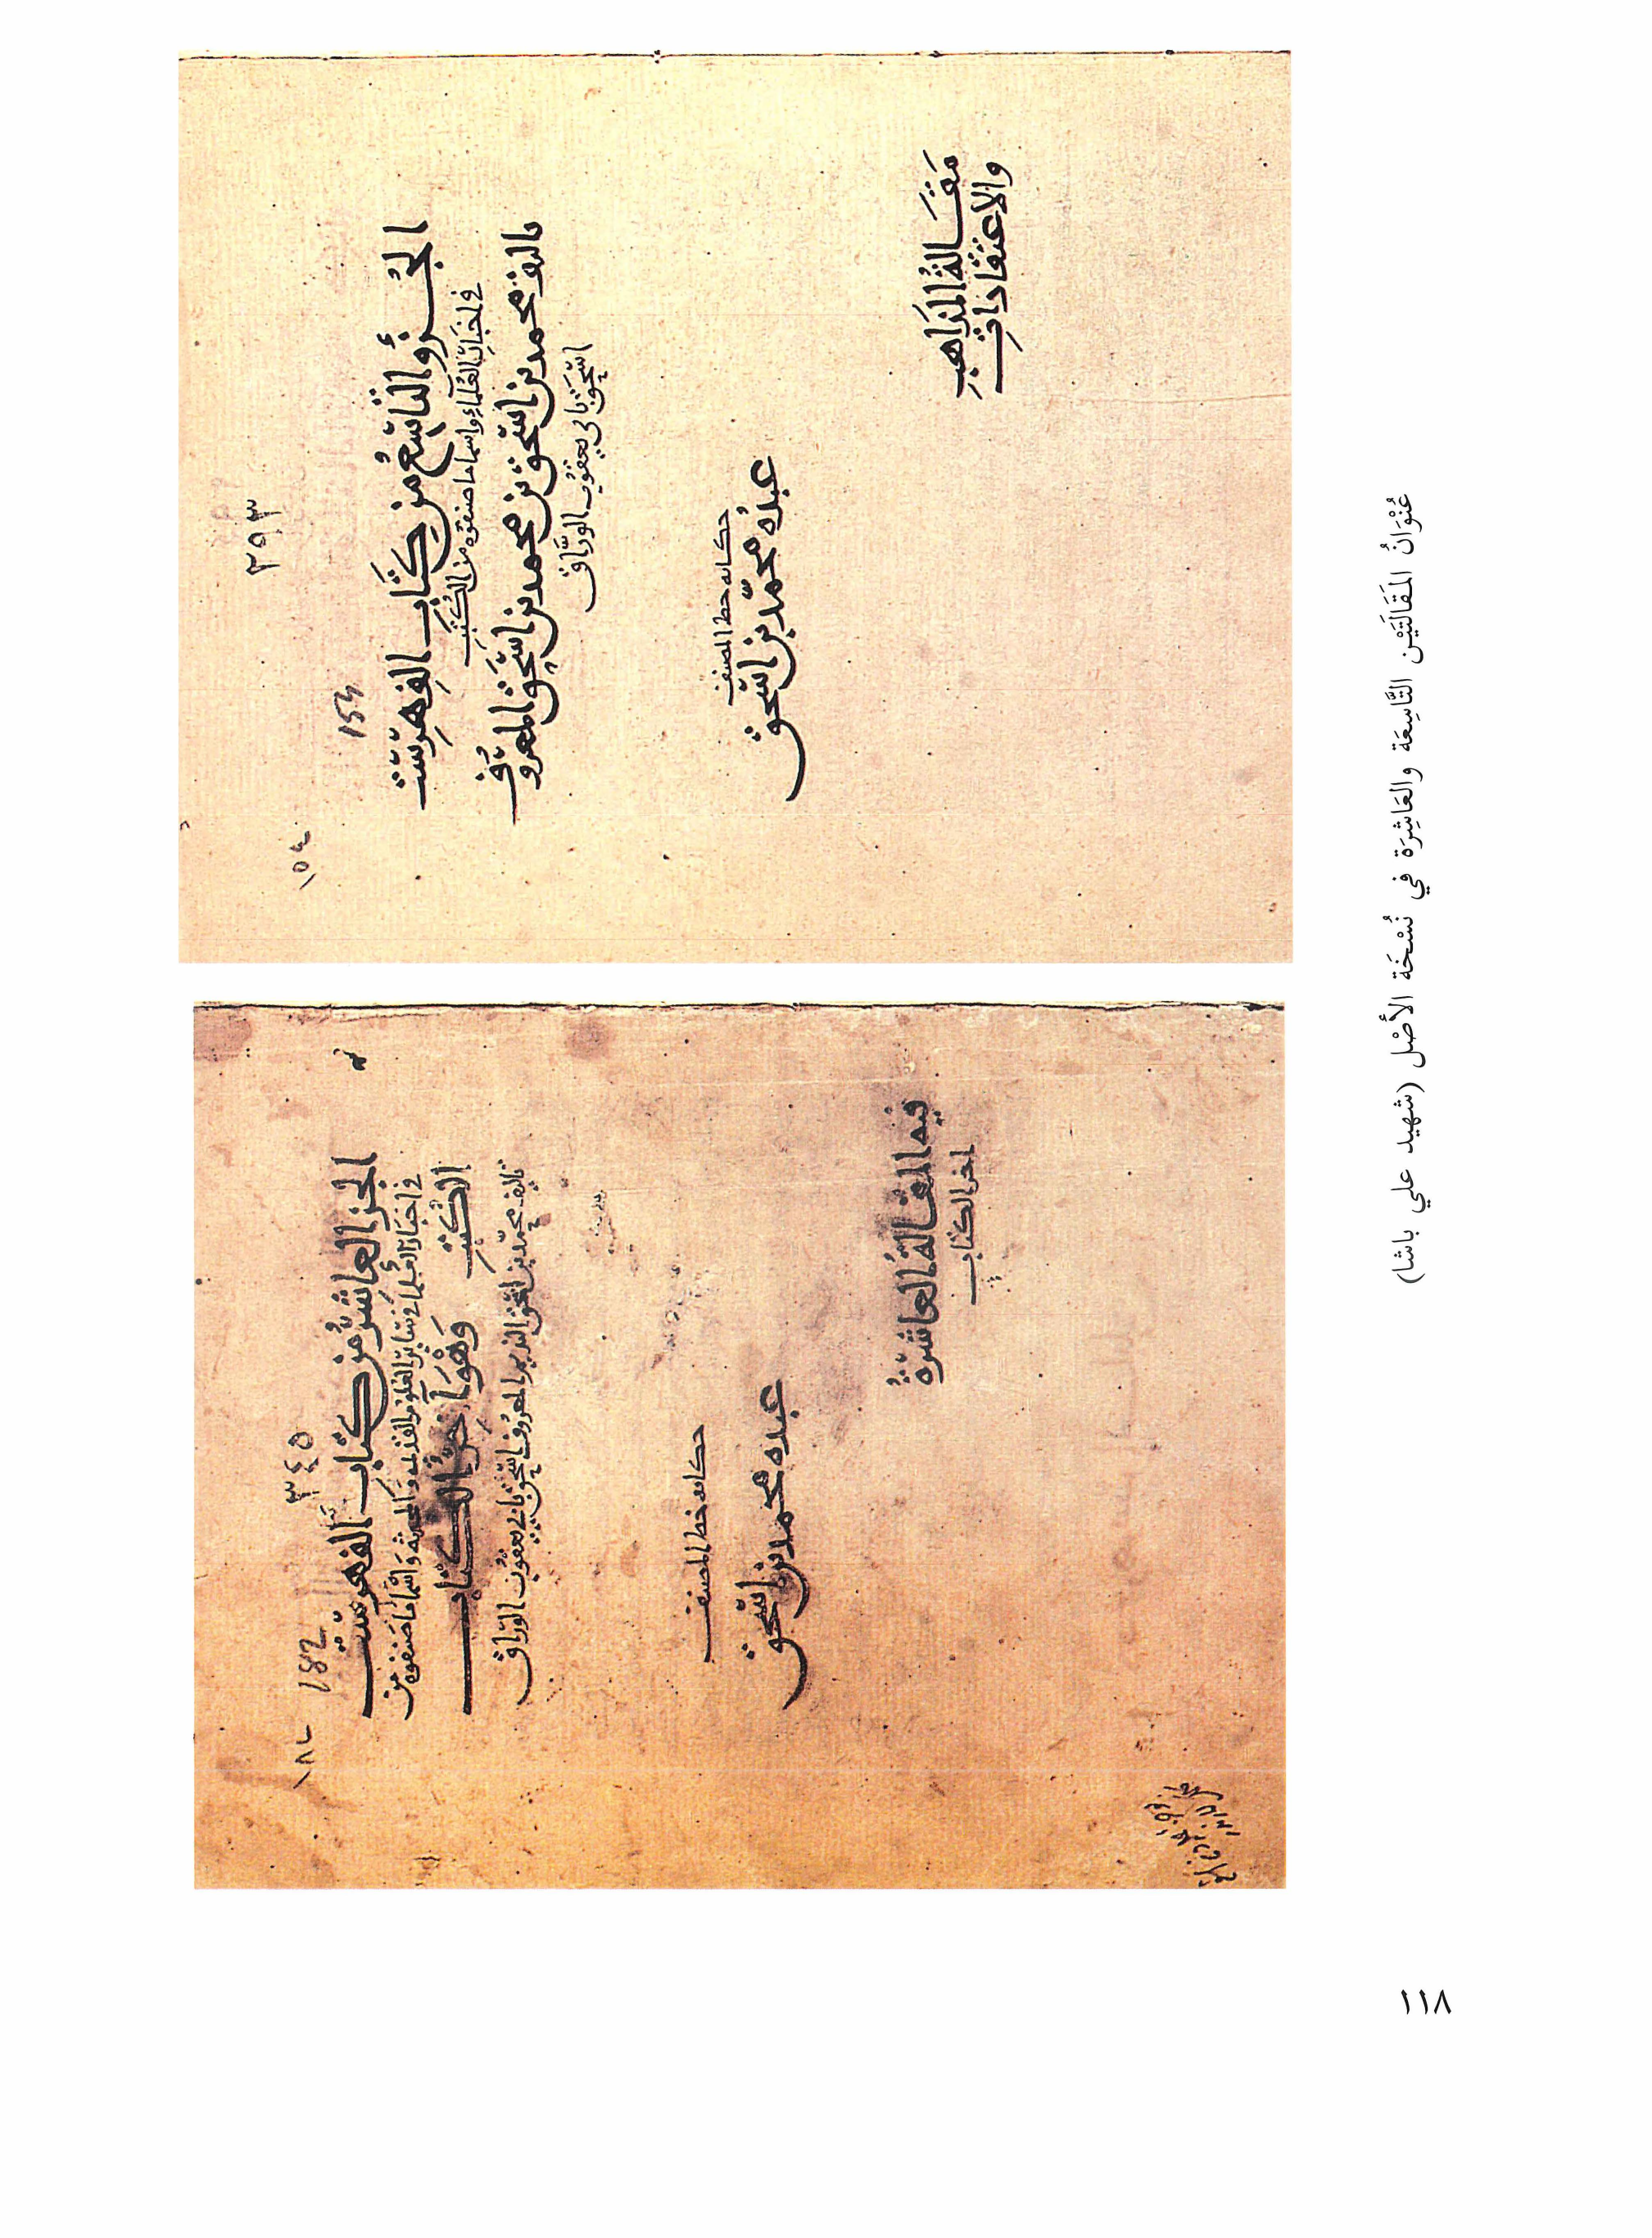 ٢٩٣
154
١٥٤
الجُزْؤُ التَّاسِعُ مِن كِتَابِ الفِهْرِسْت
في أخبَارِ العُلماءِ واسما ما صنفوُه من الكُتُبِ
تاليف محمد بن اسحَق بن محمد بن اسحَق المعروُف
اسحَق بابي يعقوُب الورَّاق
حكايه خط المصنف
عبدُه محمّد بن اسحَق
مَقَالةُ المذَاهِبِ
والاعتقَاداتِ
٣٤٥
182
١٨٢
الجز العاشرُ من كتابِ الفهرسْت
في اخبَار العُلمَا في سَايرِ العُلومِ القديمه وَالمحدثه وَاسْمَا مَا صَنفوُه من
الكتُبِ وَهْوَ آخِرُ الكتاب
تاليف محمّد بن اسحَق النديم المعروُف اسحَق بابي يعقوُب الورَّاق
حكايه خط المصنف
عبده محمد بن اسحَق
فيه المقالةُ العاشرةُ
اخر الكتاب
عُنْوَانُ المَقَالَتَيْن التَّاسِعَة والعَاشِرَة في نُسْخَة الأَصْل (شهيد علي باشا)
١١٨